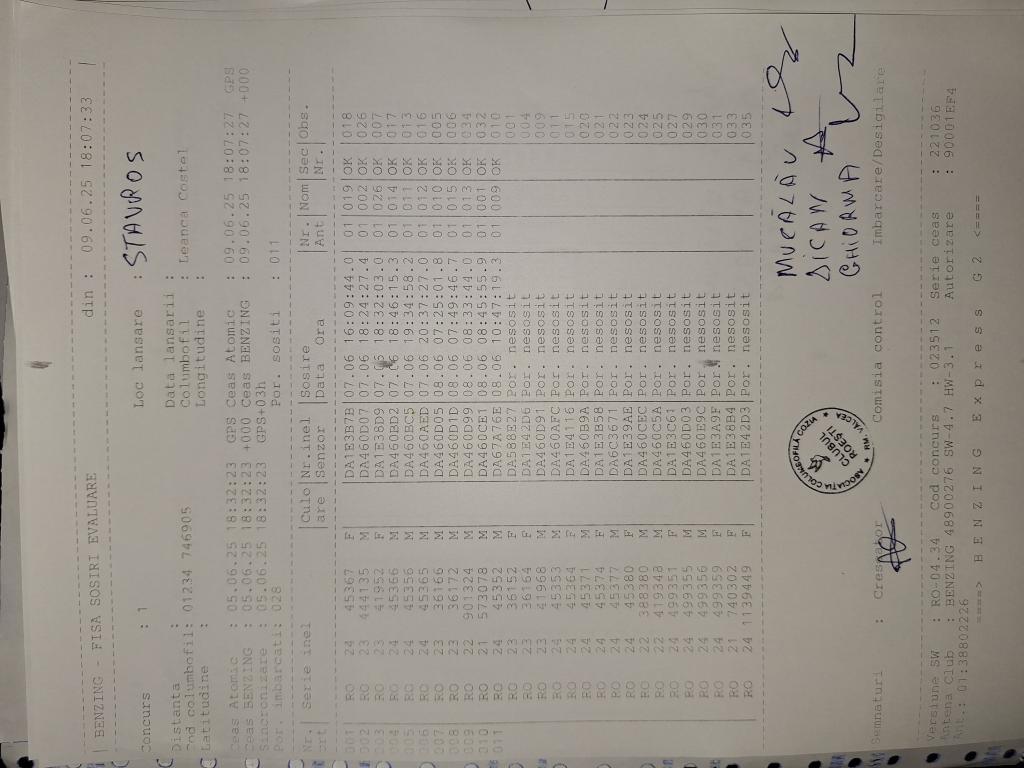 | BENZING - FISA SOSIRI EVALUARE din : 09.06.25 18:07:33 |
Concurs : 1 Loc lansare : STAVROS
Distanta : Data lansarii :
Cod columbofil: 01234 746905 Columbofil : Leanca Costel
Latitudine : Longitudine :
Ceas Atomic : 05.06.25 18:32:23 GPS Ceas Atomic : 09.06.25 18:07:27 GPS
Ceas BENZING : 05.06.25 18:32:23 +000 Ceas BENZING : 09.06.25 18:07:27 +000
Sincronizare : 05.06.25 18:32:23 GPS+03h
Por. imbarcati: 028 Por. sositi : 011
Nr.| Serie inel |Culo|Nr.inal |Sosire |Nr.|Nom|Sec|Obs.
crt| |are |Senzor |Data Ora |Ant| |Nr.|
001 RO 24 45367 F DA1E3B7B 07.06 16:09:44.0 01 019 OK 018
002 RO 23 444135 M DA460D07 07.06 18:24:27.4 01 002 OK 026
003 RO 23 41952 F DA1E3BD9 07.06 18:32:03.9 01 026 OK 007
004 RO 24 45366 M DA460BD2 07.06 18:46:15.3 01 014 OK 017
005 RO 24 45356 M DA460BC5 07.06 19:34:58.2 01 011 OK 013
006 RO 24 45365 M DA460AED 07.06 20:37:27.0 01 012 OK 016
007 RO 23 36166 M DA460D05 08.06 07:25:01.8 01 010 OK 005
008 RO 23 36172 M DA460D1D 08.06 07:49:46.7 01 015 OK 006
009 RO 22 901324 M DA460D99 08.06 08:33:44.0 01 013 OK 034
010 RO 21 573078 M DA460CE1 08.06 08:45:55.9 01 001 OK 032
011 RO 24 45352 M DA67A76E 08.06 10:47:19.3 01 009 OK 010
RO 23 36152 F DA588E27 Por. nesosit 001
RO 23 36164 F DA1E42D6 Por. nesosit 004
RO 23 41968 M DA460D91 Por. nesosit 009
RO 24 45353 M DA460AFC Por. nesosit 011
RO 24 45364 F DA1E4116 Por. nesosit 015
RO 24 45371 M DA460B9A Por. nesosit 020
RO 24 45374 F DA1E3B58 Por. nesosit 021
RO 24 45377 M DA6C3671 Por. nesosit 022
RO 24 45380 F DA1E39AE Por. nesosit 023
RO 22 388380 M DA460CEC Por. nesosit 024
RO 22 419348 M DA460C5A Por. nesosit 025
RO 24 499351 F DA1E3C61 Por. nesosit 027
RO 24 499355 M DA460D03 Por. nesosit 029
RO 24 499356 M DA460E9C Por. nesosit 030
RO 24 499359 F DA1E3A9F Por. nesosit 031
RO 21 740302 F DA1E38B4 Por. nesosit 033
RO 24 1139449 F DA1E42D3 Por. nesosit 035
MUCĂLĂU
DICAN
GHIORMA
ASOCIATIA COLUMBOFILA COZIA
RM. VALCEA
CLUBUL
ROESTI
Semnaturi : Crescator Comisia control Imbarcare/Desigilare
Versiune SW : RO-04.34 Cod concurs : 023512 Serie ceas : 221036
Antena Club : BENZING 48900276 SW-4.7 HW-3.1 Autorizare : 90001EF4
Ant.: 01:38802226
====> B E N Z I N G E x p r e s s G 2 <====